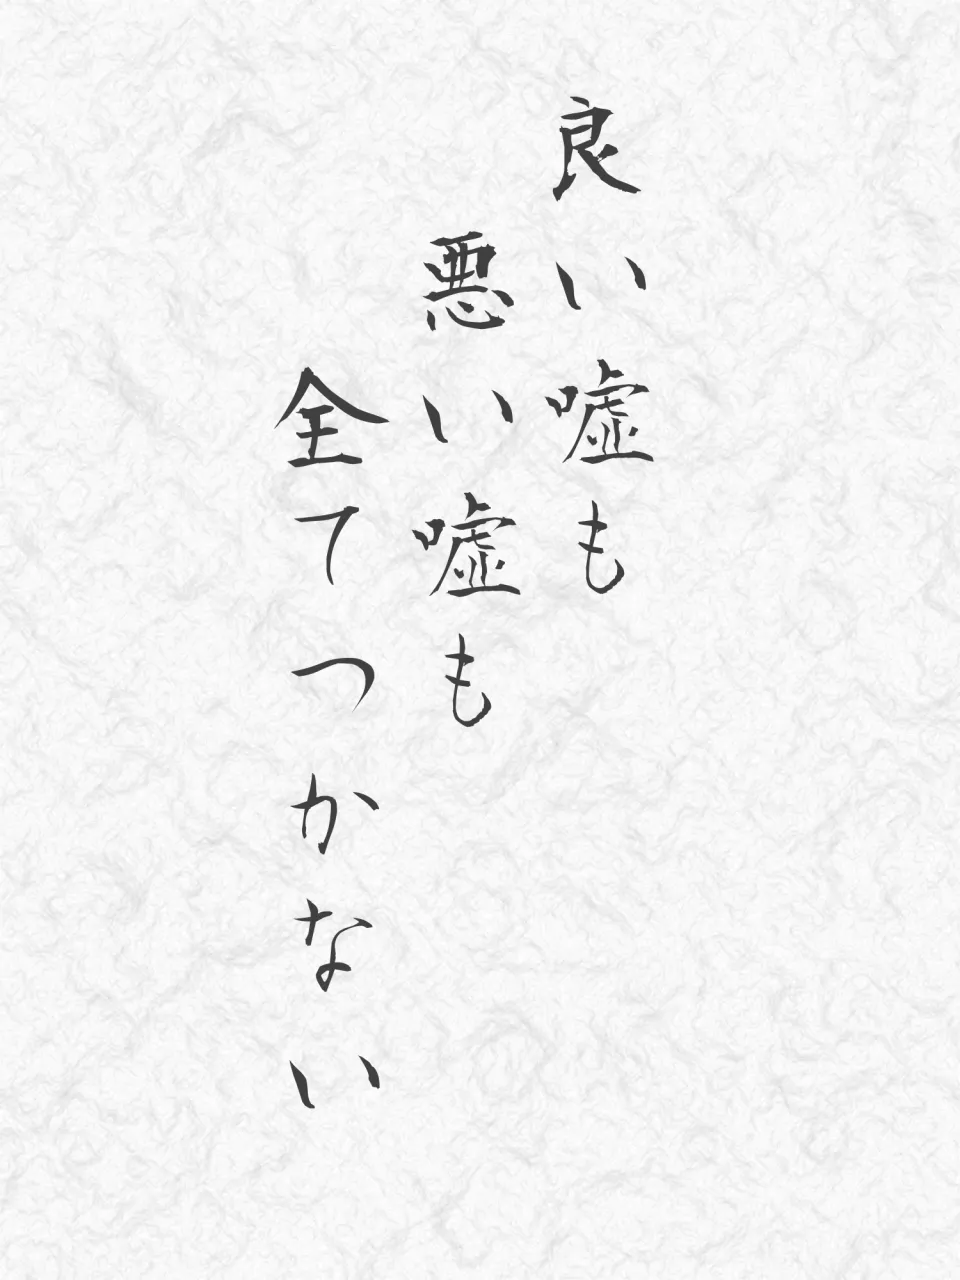 良い嘘も
悪い嘘も
全てつかない